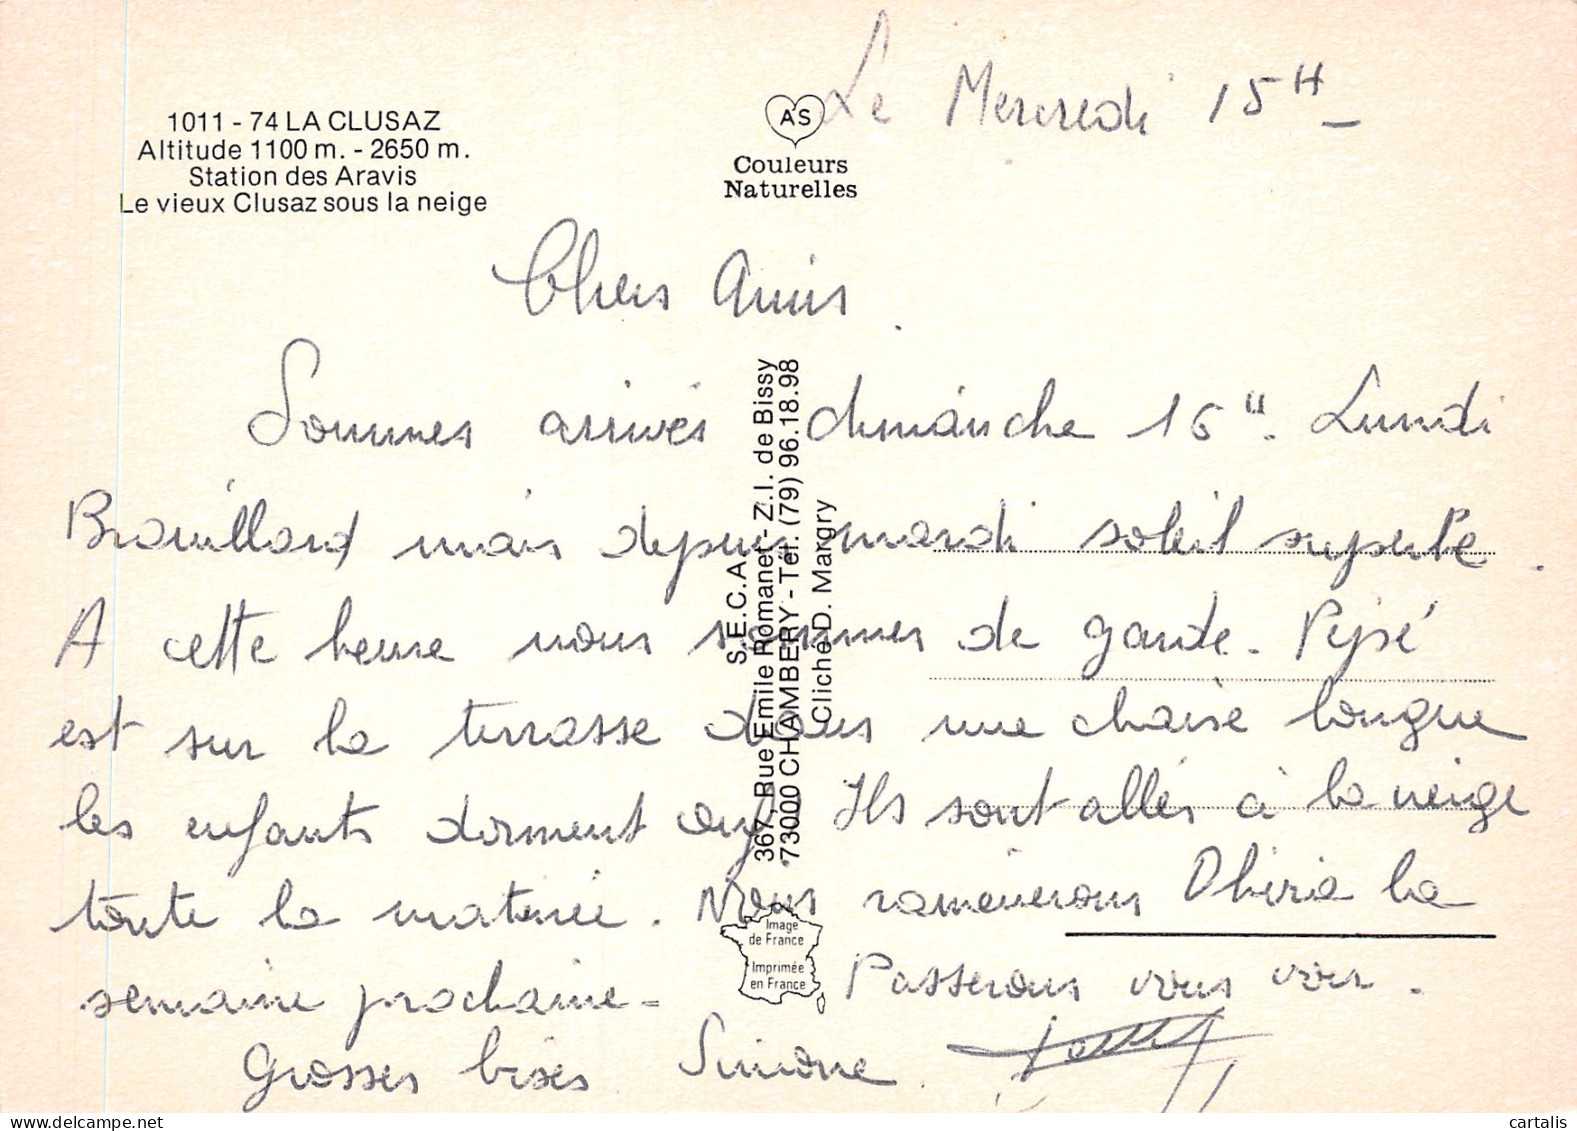 Le Mercredi 15H -
1011 - 74 LA CLUSAZ
Altitude 1100 m. - 2650 m.
Station des Aravis
Le vieux Clusaz sous la neige
AS
Couleurs
Naturelles
Chers Amis
Sommes arrivés dimanche 16H. Lundi
Brouillard mais depuis mardi soleil superbe.
A cette heure nous sommes de garde. Pépé
est sur la terrasse dans une chaise longue
les enfants dorment. Ils sont allés à la neige
toute la matinée. Nous ramènerons la
semaine prochaine - Passerons vous voir.
Grosses bises Simone.
S.E.C.A.
367, Rue Emile Romanet - Z.I. de Bissy
73000 CHAMBERY - Tél. (79) 96.18.98
Cliché D. Margry
Image
de France
Imprimée
en France
cartalis
delcampe.net